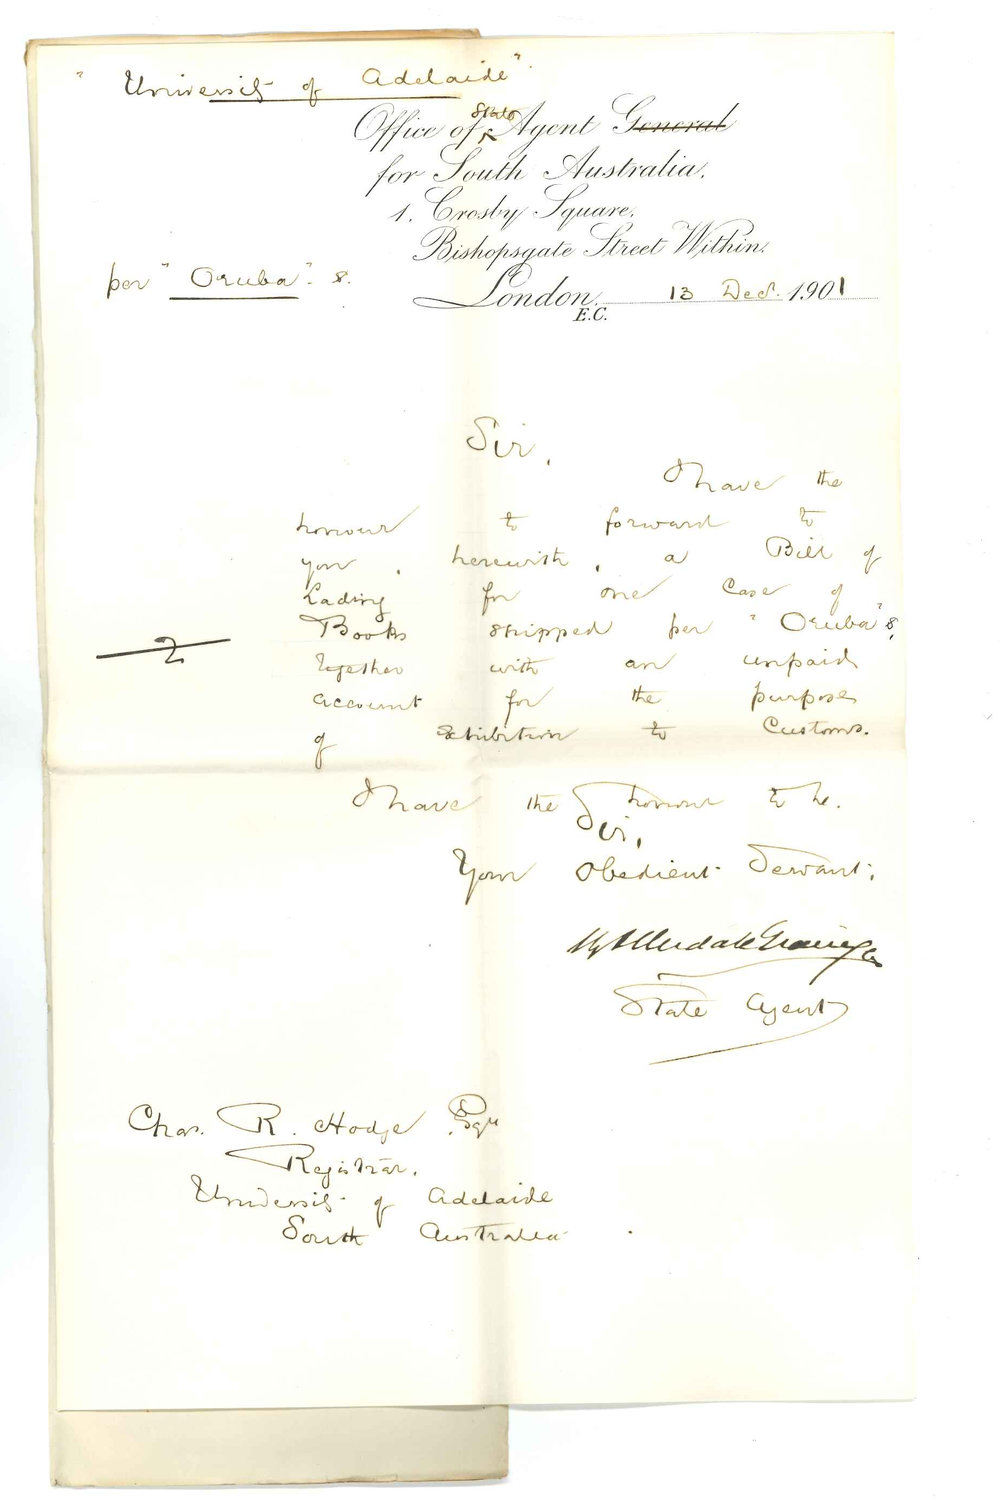 "University of Adelaide".
Office of State Agent General
for South Australia,
1, Crosby Square,
Bishopsgate Street Within.
per "Oruba" s.
London, 13 Dec. 1901
E.C.
Sir,
I have the
honour to forward to
you, herewith, a Bill of
Lading for one case of
Books shipped per "Oruba" s,
together with an unpaid
account for the purpose
of exhibition to Customs.
2
I have the honour to be.
Sir,
Your obedient Servant,
State Agent
Chas. R. Hodge Esqre
Registrar,
University of Adelaide
South Australia.